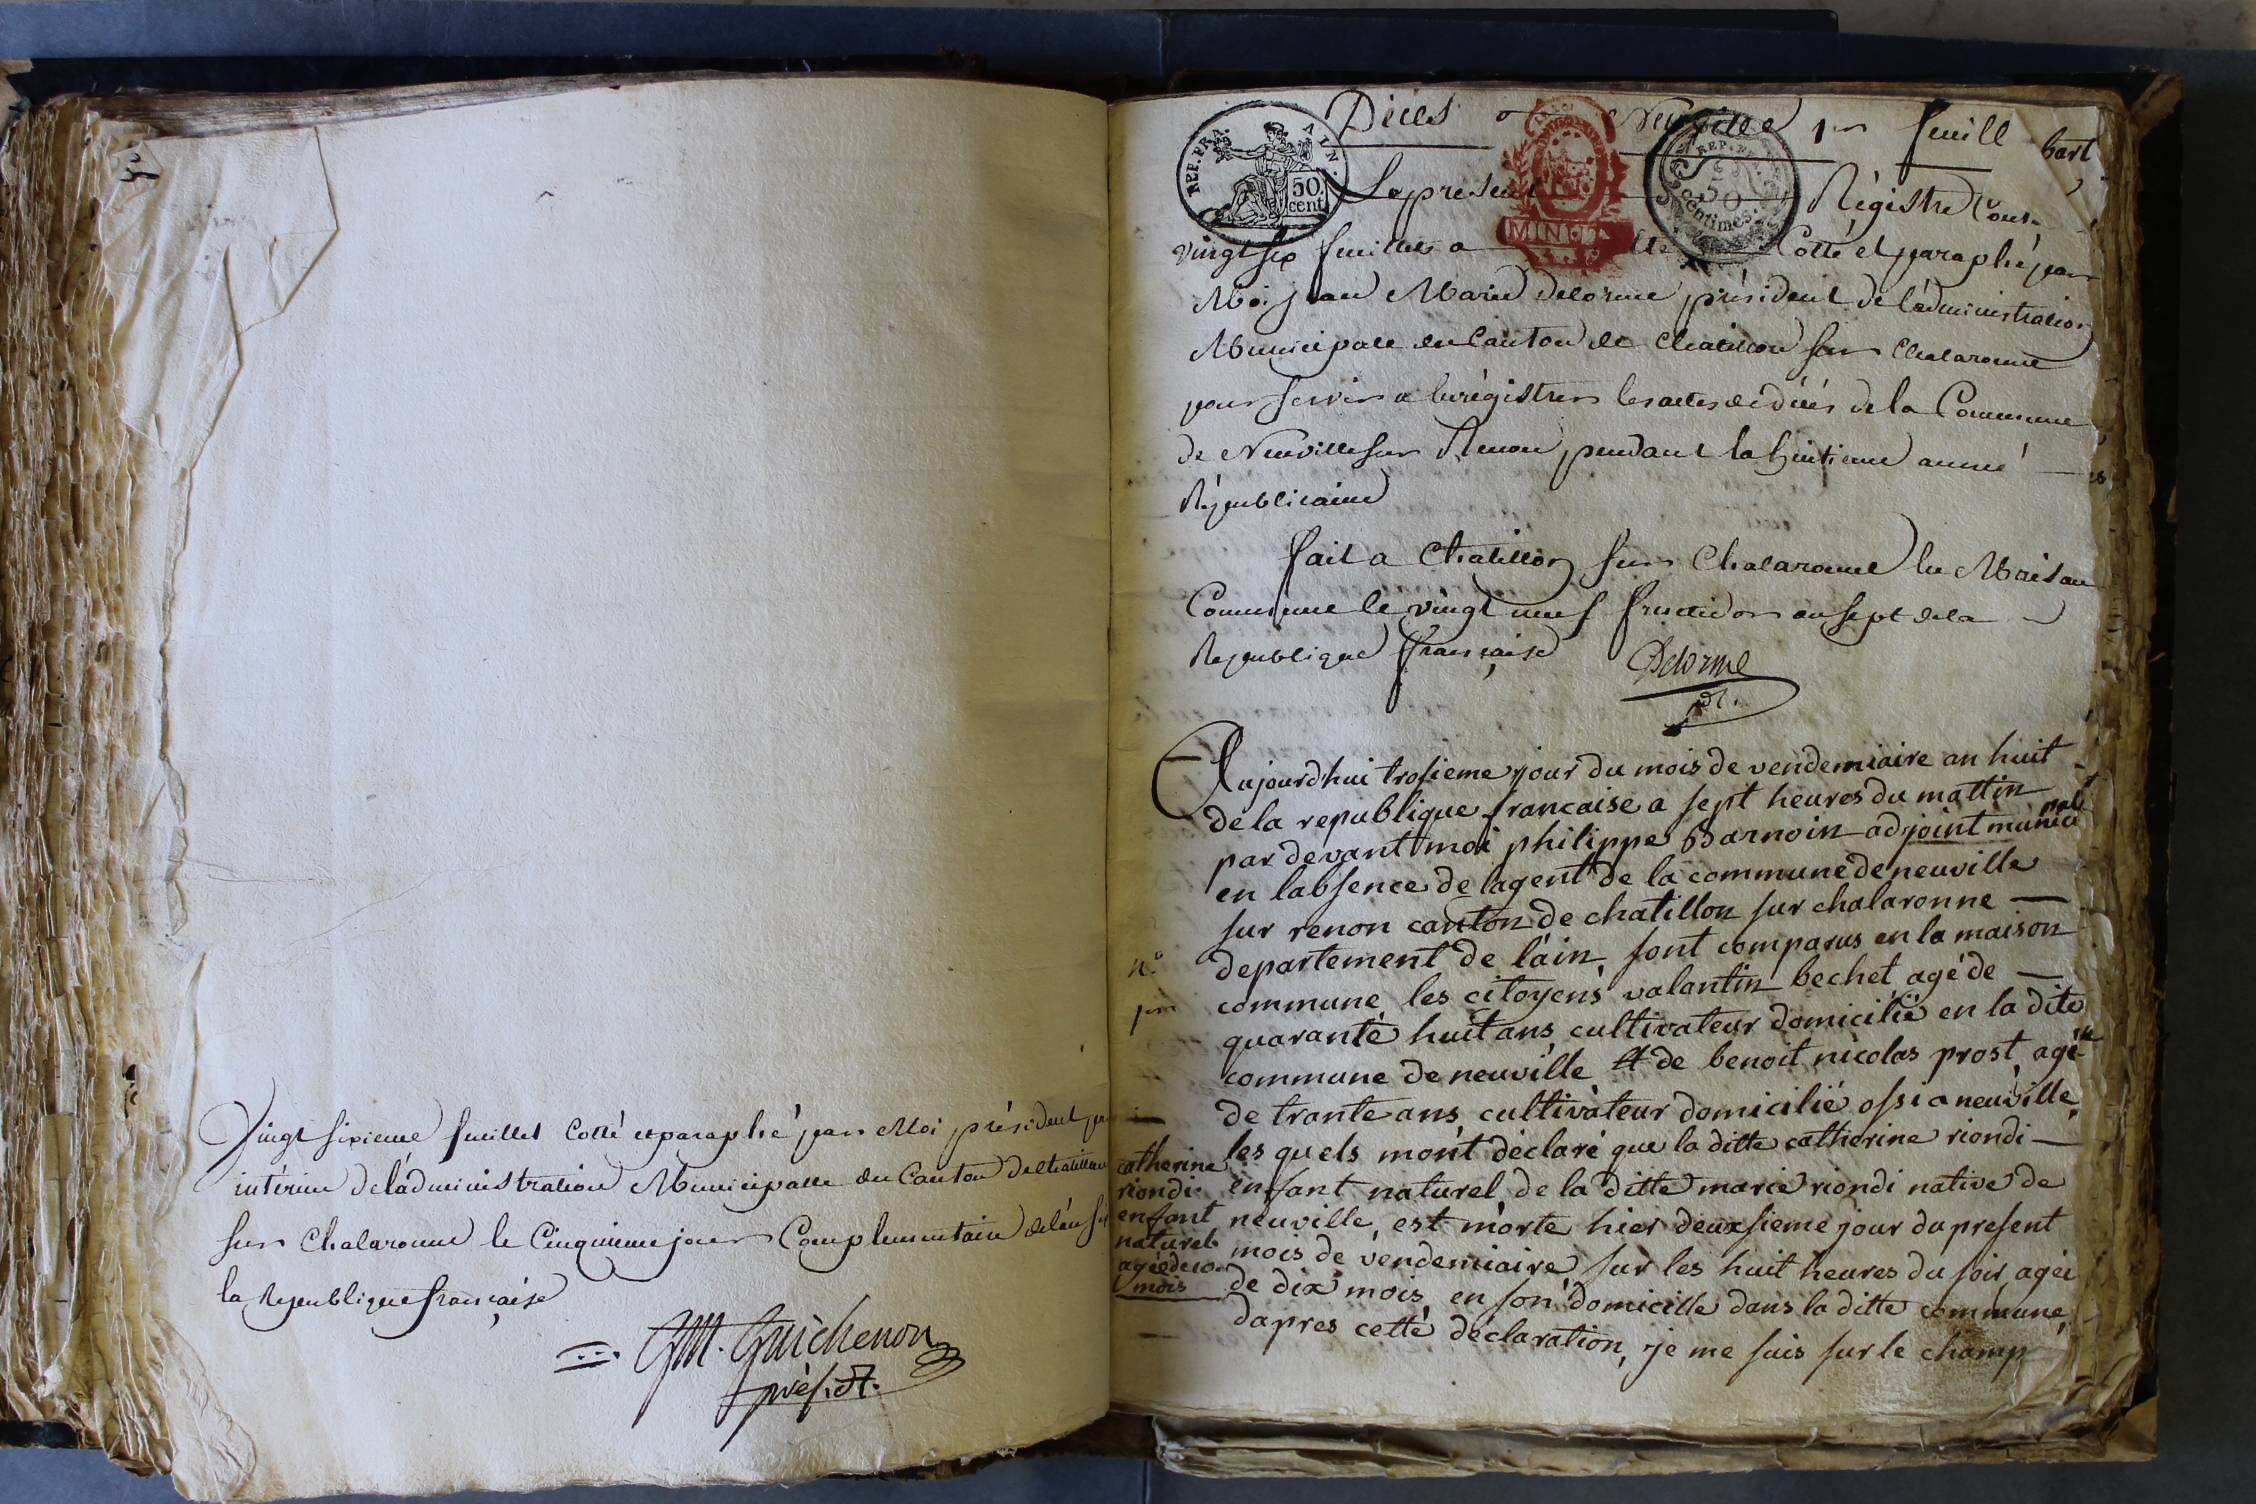 Vingt sixieme feuillet Cotté et paraphé par Moi président par
intérim de l'administration Municipalle du Canton de chatillon
sur Chalaronne le Cinquieme jour Complementaire de l'an
la Republique française
JM. Guichenon
présidt.
Décès Neuville 1er feuill
REP. FRA. AIN.
50 cent
REP. FRA.
50 centimes
MINUTE
Le present Régistre Cont.
vingt six feuillets a Cotté et paraphé par
Moi jean Marie Delorme président de l'administration
Municipale du Canton de Chatillon sur Chalaronne
pour servir a enrégistrer les actes de décés de la Commune
de Neuville sur Renon pendant la huitieme année
Républicaine
fait a Chatillon sur Chalaronne en Maison
Commune le vingt neuf fructidor an sept de la
Republique française
Delorme
Aujourd'hui trosieme jour du mois de vendemiaire an huit
de la republique francaise a sept heures du mattin
par devant moi philippe Barnoin adjoint municipale
en labsence de lagent de la commune de neuville
sur renon canton de chatillon sur chalaronne
departement de l'ain, sont comparus en la maison
commune les citoyens valantin bechet, agé de
quarante huit ans cultivateur domicilié en la dite
commune de neuville et de benoit nicolas prost agé
de trante ans cultivateur domicilié ossi a neuville,
les quels mont déclaré que la ditte catherine riondi
enfant naturel de la ditte marie riondi native de
neuville, est morte hier deuxsieme jour du present
mois de vendemiaire sur les huit heures du soir, ageé
de dix mois en son domicille dans la ditte commune,
dapres cette déclaration, je me suis sur le champ
n.o
catherine
riondi
enfant
naturel
agée de 10
mois